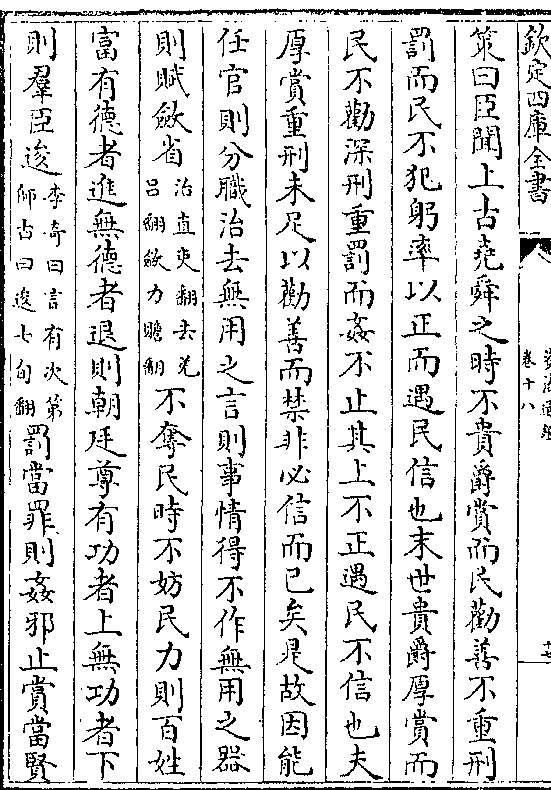 欽定四庫全書
卷十八
策曰臣聞上古堯舜之時不貴爵賞而民勸善不重刑
罰而民不犯躬率以正而遇民信也末世貴爵厚賞而
民不勸深刑重罰而姦不止其上不正遇民不信也夫
厚賞重刑未足以勸善而禁非必信而已矣是故因能
任官則分職治去無用之言則事情得不作無用之器
則賦斂省治直吏翻去羌呂翻斂力贍翻不奪民時不妨民力則百姓
富有德者進無德者退則朝廷尊有功者上無功者下
則羣臣逡李奇曰言有次第師古曰逡七旬翻罰當罪則姦邪止賞當賢